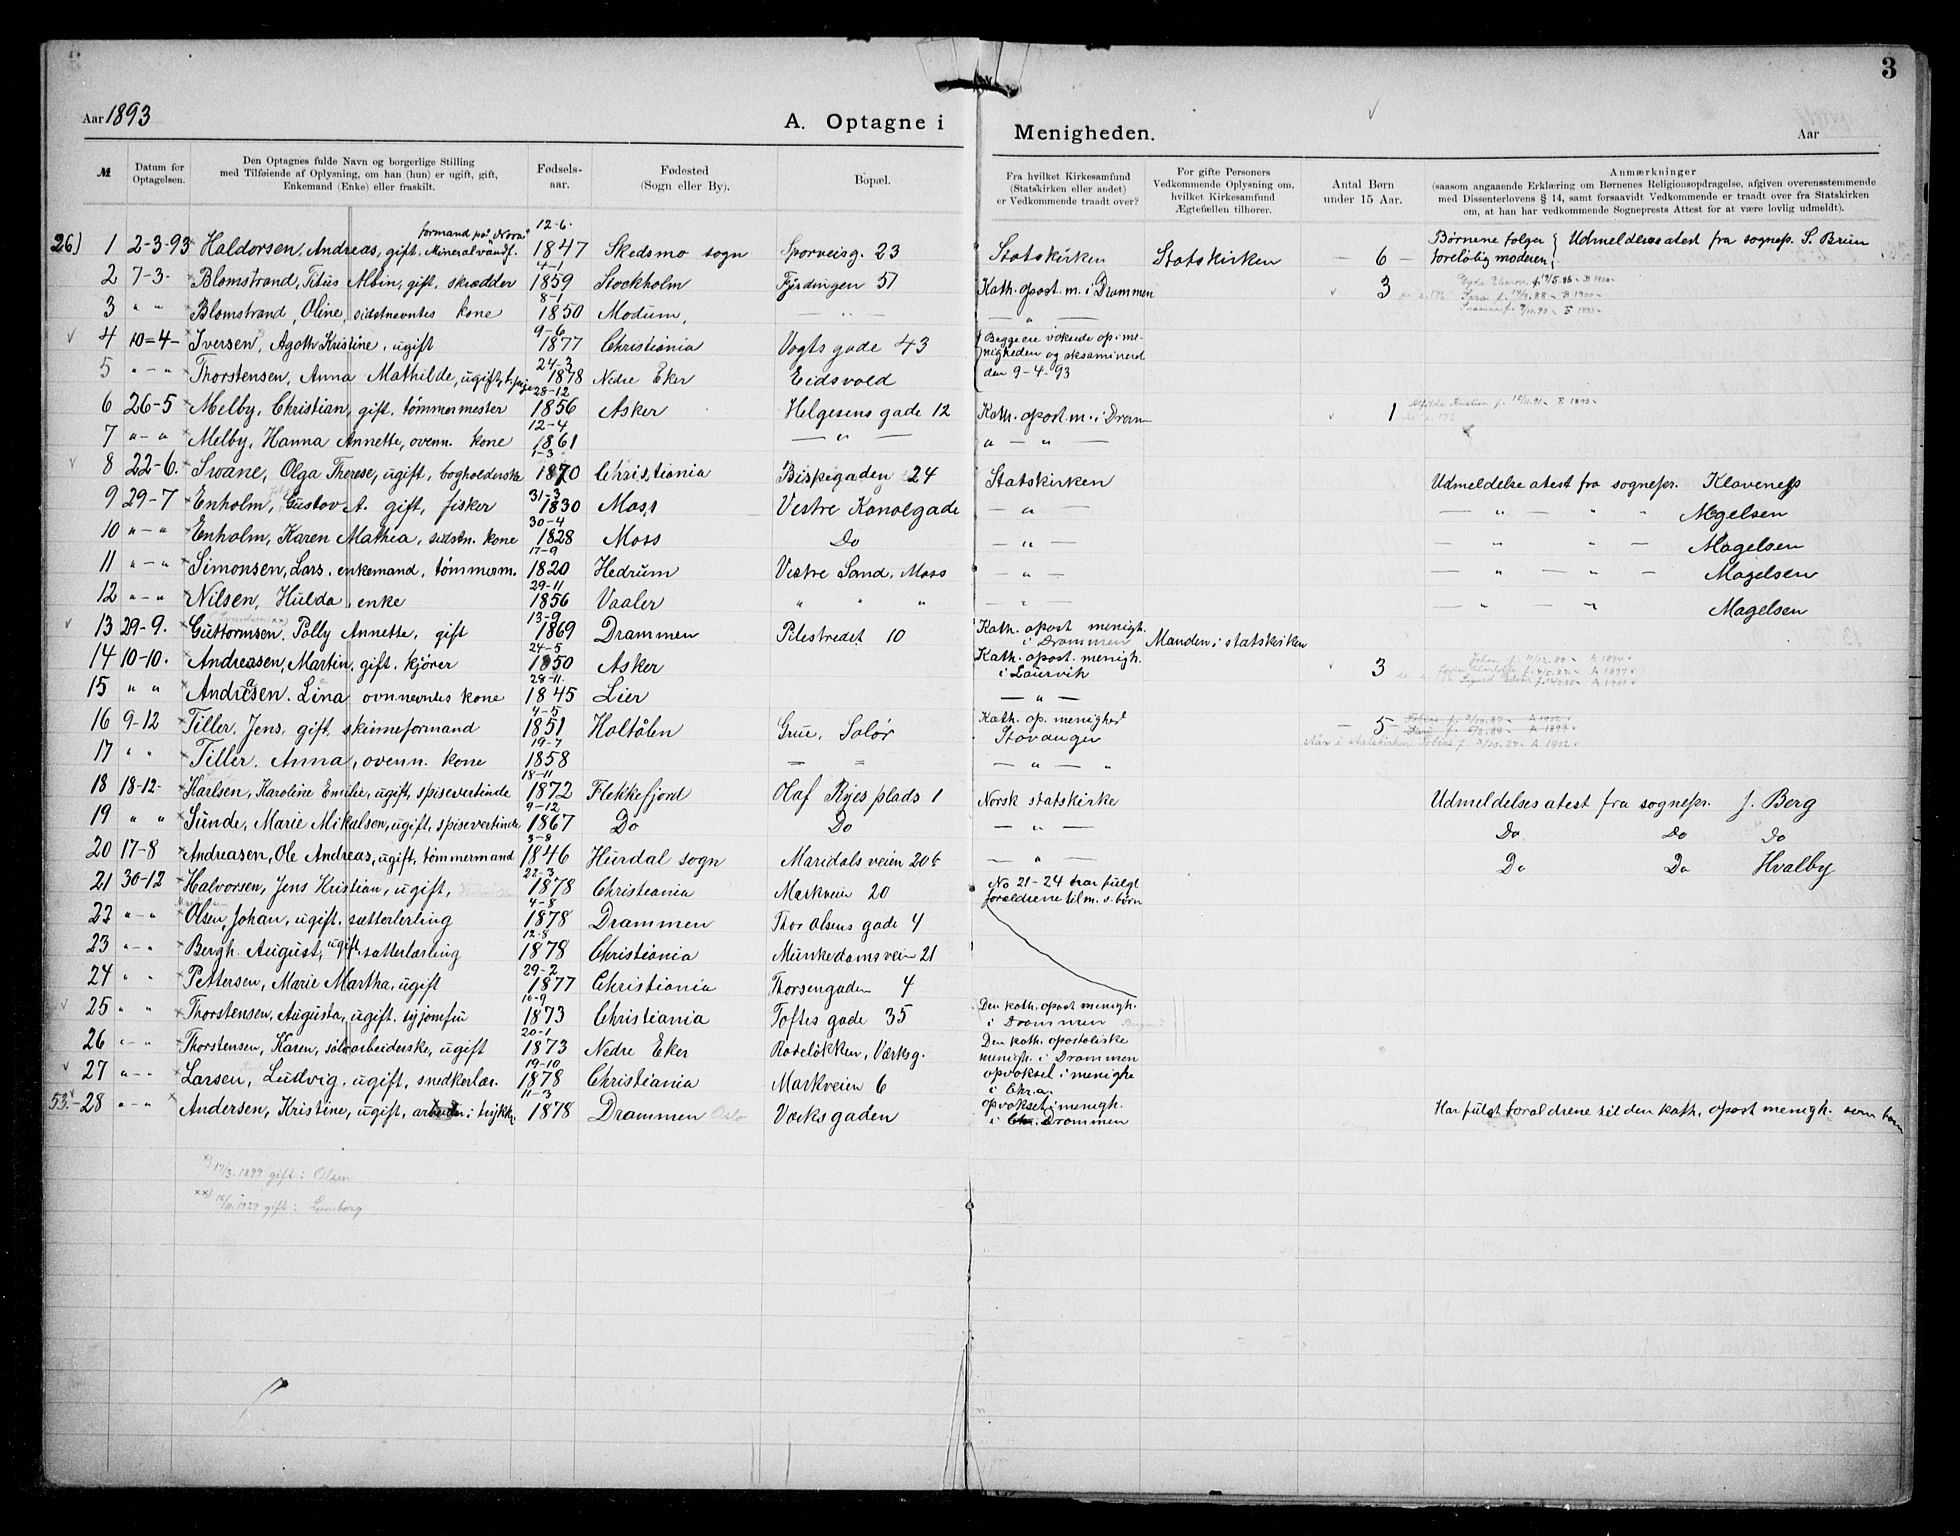 3
Aar 1893
A. Optagne i Menigheden.
Aar
№
Datum for Optagelsen.
Den Optagnes fulde Navn og borgerlige Stilling
med Tilføiende af Oplysning, om han (hun) er ugift, gift,
Enkemand (Enke) eller fraskilt.
Fødsels-
aar.
Fødested
(Sogn eller By).
Bopæl.
Fra hvilket Kirkesamfund
(Statskirken eller andet)
er Vedkommende traadt over?
For gifte Personers
Vedkommende Oplysning om,
hvilket Kirkesamfund
Ægtefællen tilhører.
Antal Børn
under 15 Aar.
Anmærkninger
(saasom angaaende Erklæring om Børnenes Religionsopdragelse, afgiven overensstemmende
med Dissenterlovens § 14, samt forsaavidt Vedkommende er traadt over fra Statskirken
om, at han har vedkommende Sogneprests Attest for at være lovlig udmeldt).
26) 1 2-3-93 Haldorsen, Andreas, gift, formand på "Nora" Mineralvandf. 12-6- 1847 Skedsmo sogn Sporveisg. 23 Statskirken Statskirken - 6 - Børnene følger foreløbig moderen Udmeldelsesatest fra sognep. S. Brun
2 7-3- Blomstrand, Titus Albin, gift, skrædder 4-1 1859 Stockholm Fjerdingen 51 Kath. apost. m. i Drammen 3
3 " " Blomstrand, Oline, sidstnevntes kone 8-1 1850 Modum, — " —
4 10-4- Iversen, Agoth Kristine, ugift 9-6 1877 Christiania Vogts gade 43 Begge ere voksede op i me-
nigheden og eksamineret
den 9-4-93
5 " - " Thorstensen, Anna Mathilde, ugift, 24-3 1878 Nedre Eker Eidsvold
6 26-5 Melby, Christian, gift, tømmermester 28-12 1856 Asker Helgesens gade 12 Kath. apost. m. i Dram 1
7 " - " Melby, Hanna Annette, ovenn. kone 12-4 1861 — " — " — " —
8 22-6. Swane, Olga Therese, ugift, bogholderske 1-3 1870 Christiania Bispegaden 24 Statskirken Udmeldelse atest fra sognepr. Klaveness
9 29-7 Enholm, Gustov A. gift, fisker 31-3 1830 Moss Vestre Kanalgade — " — — " — " " Magelsen
10 " - " Enholm, Karen Mathea, sidstn. kone 30-4 1828 Moss Do — " — — " " — Magelsen
11 " - " Simonsen, Lars, enkemand, tømmerm. 17-9 1820 Hedrum Vestre Sand, Moss — " — — " — " — Magelsen
12 " - " Nilsen, Hulda, enke 29-11 1856 Vaaler " " " — " — " — " — Magelsen
13 29-9. Guttormsen, Polly Annette, gift 13-9 1869 Drammen Pilestredet 10 Kath. apost menigh.
i Drammen Manden i statskirken
14 10-10. Andreasen, Martin, gift, kjører 24-5 1850 Asker Kath. apost. menigh.
i Laurvik 3
15 " " Andreasen. Lina ovn.nevntes kone 28-11 1845 Lier — " —
16 9-12 Tiller, Jens, gift, skinneformand 4-5 1851 Holtålen Grue, Solør Kath. ap. menighed
Stavanger - 5 -
står i statskirken
17 " " Tiller. Anna, ovenn. kone 19-7 1858 — = — " — "
18 18-12- Karlsen, Karoline Emilie, ugift, spisevertinde 18-11 1872 Flekkefjord Olaf Ryes plads 1 Norsk statskirke Udmeldelses atest fra sognepr. J. Berg
19 " " Sunde, Marie Mikalsen, ugift, spisevertinde 9-12 1867 Do Do — " — Do Do Do
20 17-8 Andreasen, Ole Andreas, ugift, tømmermand 3-8 1846 Hurdal sogn Maridalsveien 20b — " — Do Do Hvalby
21 30-12 Halvorsen, Jens Kristian, ugift, 22-3 1878 Christiania Markveien 20 No 21-24 har fulgt
forældrene til m. s. børn
22 " - " Olsen, Johan, ugift, sætterlerling 4-8 1878 Drammen Thor Olsens gade 4
23 " - " Bergh. August, ugift, sætterlærling 12-8 1878 Christiania Munkedamsveien 21
24 " " Pettersen, Marie Martha, ugift 29-2 1877 Christiania Thorsengaden 4
25 " " Thorstensen, Augusta, ugift. syjomfru 16-9 1873 Christiania Toftes gade 35 Den kath. apost menigh.
i Drammen
26 " - " Thorstensen, Karen, sølvarbeiderske, ugift 20-1 1873 Nedre Eker Rodeløkken, Værksg. Den kath. apostoliske
menigh. i Drammen
27 " - " Larsen, Ludvig, ugift, snedkerlær. 19-10 1878 Christiania Markveien 6 opvokset i menighe
i Chr.a.
53.- 28 " - " Andersen, Kristine, ugift, 11-3 1878 Drammen Oslo Værksgaden opvokset i menigh.
i Chr. Drammen Har fulgt forældrene til den kath. apost menigh. som barn
x) 17/3. 1899 gift: Olsen
xx) 1929 gift: Luneborg